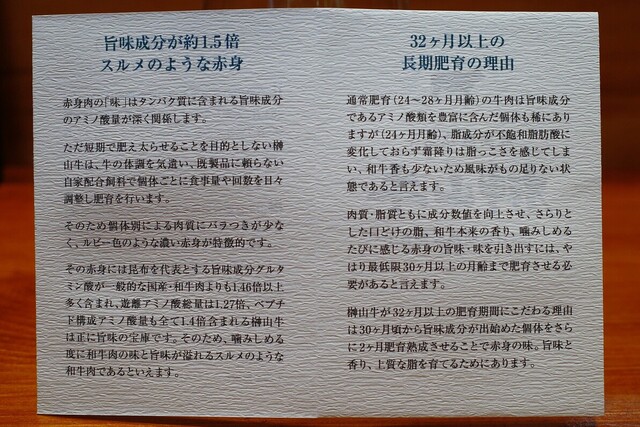 旨味成分が約1.5倍
スルメのような赤身
赤身肉の「味」はタンパク質に含まれる旨味成分
のアミノ酸量が深く関係します。
ただ短期で肥え太らせることを目的としない榊
山牛は、牛の体調を気遣い、既製品に頼らない
自家配合飼料で個体ごとに食事量や回数を日々
調整し肥育を行います。
そのため個体別による肉質にバラつきが少な
く、ルビー色のような濃い赤身が特徴的です。
その赤身には昆布を代表とする旨味成分グルタ
ミン酸が一般的な国産・和牛肉よりも1.46倍以上
多く含まれ、遊離アミノ酸総量は1.27倍、ペプチ
ド構成アミノ酸量も全て1.4倍含まれる榊山牛
は正に旨味の宝庫です。そのため、噛みしめる
度に和牛肉の味と旨味が溢れるスルメのような
和牛肉であるといえます。
32ヶ月以上の
長期肥育の理由
通常肥育(24〜28ヶ月月齢)の牛肉は旨味成分
であるアミノ酸類を豊富に含んだ個体も稀にあり
ますが(24ヶ月月齢)、脂成分が不飽和脂肪酸に
変化しておらず霜降りは脂っこさを感じてしま
い、和牛香も少ないため風味がもの足りない状
態であると言えます。
肉質・脂質ともに成分数値を向上させ、さらりと
した口どけの脂、和牛本来の香り、噛みしめる
たびに感じる赤身の旨味・味を引き出すには、や
はり最低限30ヶ月以上の月齢まで肥育させる必
要があると言えます。
榊山牛が32ヶ月以上の肥育期間にこだわる理由
は30ヶ月頃から旨味成分が出始めた個体をさら
に2ヶ月肥育熟成させることで赤身の味。旨味と
香り、上質な脂を育てるためにあります。